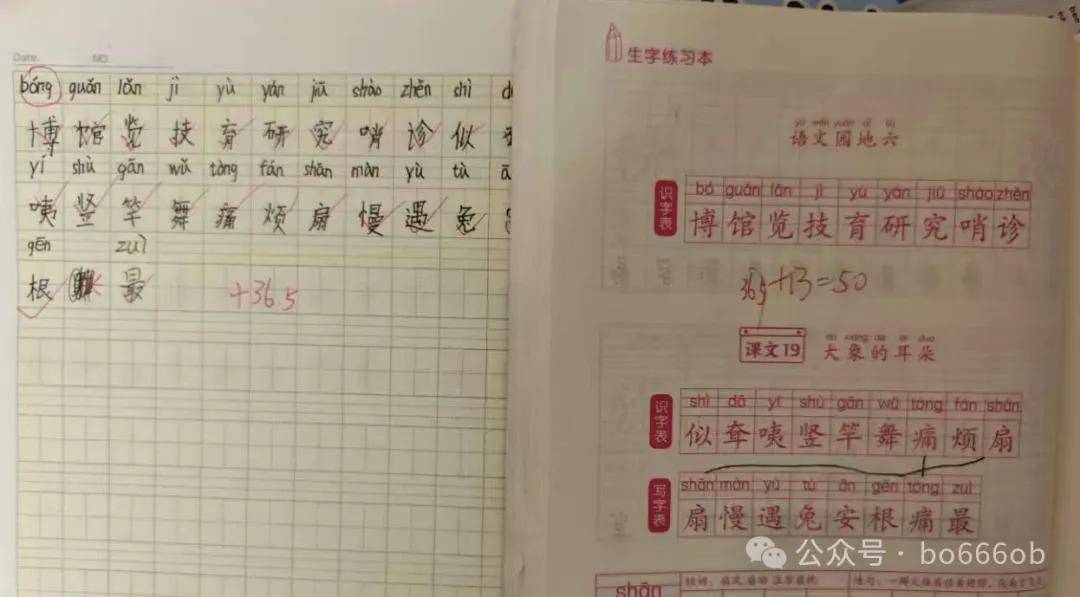 Date. NO.
bóng guǎn lǎn jì yù yán jiū shào zhěn shì
博 馆 览 技 育 研 究 哨 诊 似
yí shù gān wǔ tòng fán shān màn yù tù
咦 竖 竿 舞 痛 烦 扇 慢 遇 兔
gēn zuì
根 最
+36.5
生字练习本
语文园地六
识字表
bó guǎn lǎn jì yù yán jiū shào zhěn
博 馆 览 技 育 研 究 哨 诊
36.5+13=50
课文19 大象的耳朵
识字表
shì dā yí shù gān wǔ tòng fán shān
似 耷 咦 竖 竿 舞 痛 烦 扇
写字表
shān màn yù tù ān gēn tòng zuì
扇 慢 遇 兔 安 根 痛 最
shān
公众号·bo666ob